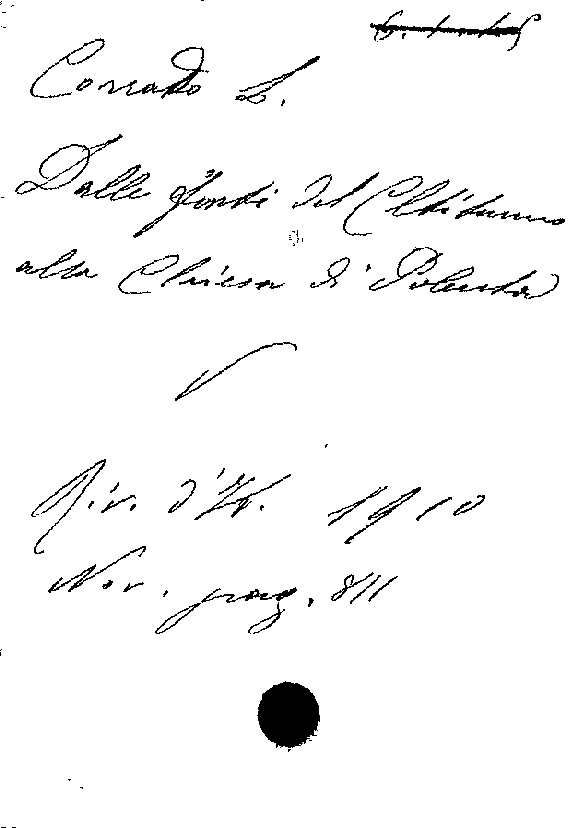 Corrado L.
Dalle fonti del Clitumno
alla Chiesa di Polenta
Riv. d'It. 1910
Nov. pag. 811